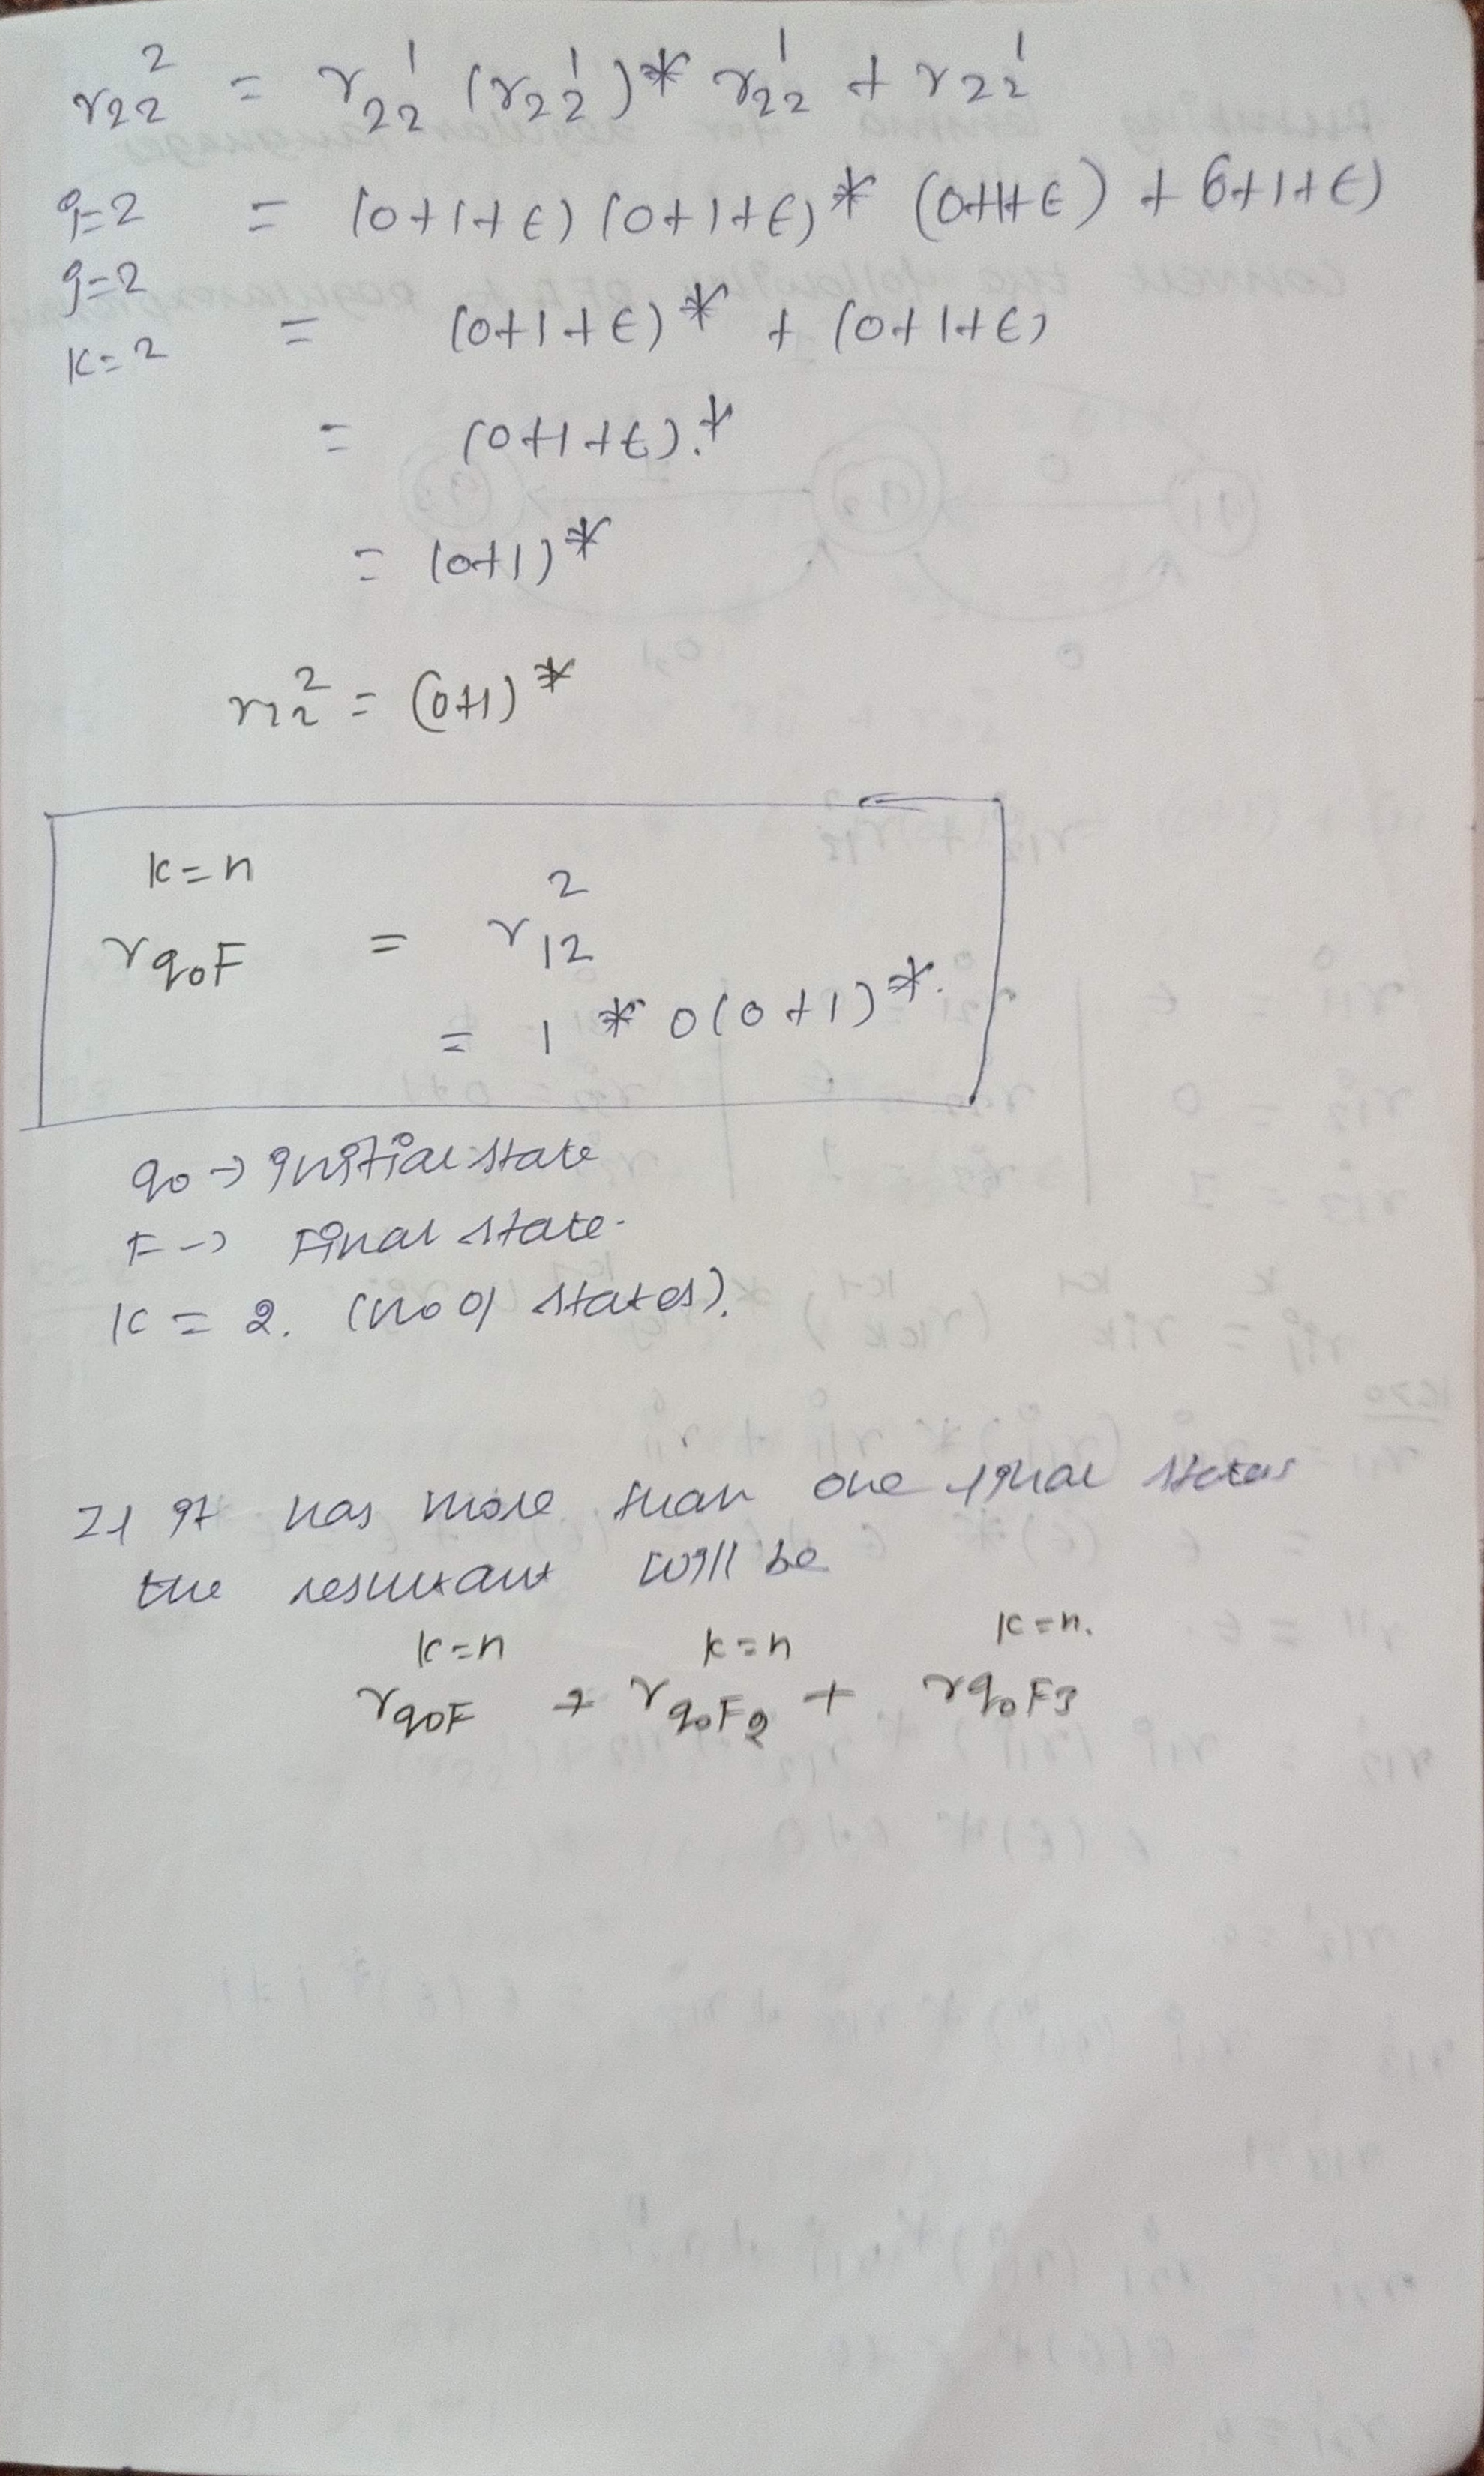 r22^2 = r22^1 (r22^1)* r22^1 + r22^1
i=2 = (0+1+ϵ) (0+1+ϵ)* (0+1+ϵ) + (0+1+ϵ)
j=2
k=2 = (0+1+ϵ)* + (0+1+ϵ)
= (0+1+ϵ).*
= (0+1)*
r22^2 = (0+1)*
k=n
r q0F = r12^2
= 1* 0(0+1)*.
q0 → initial state
F → Final state.
k = 2. (no of states).
If it has more than one final states
the resultant will be
k=n k=n k=n.
r q0F + r q0F2 + r q0F3